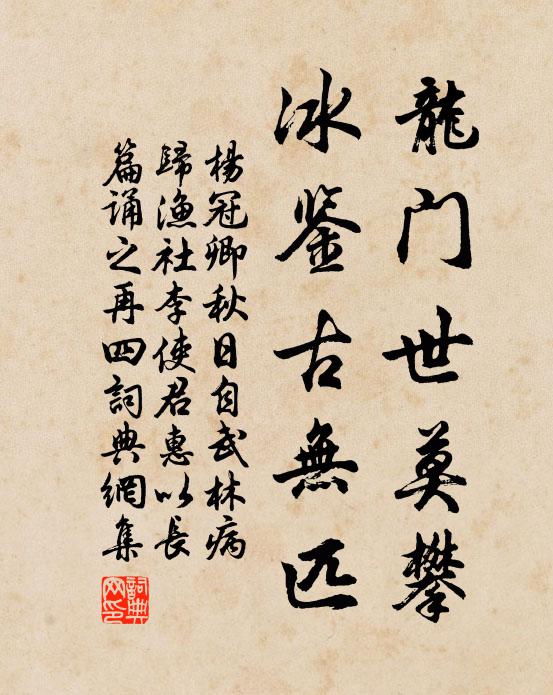 龍门世莫攀
冰鉴古無匹
楊冠卿秋日自武林病
歸漁社李使君惠以長
篇誦之再四詞典網集
詞典
网印